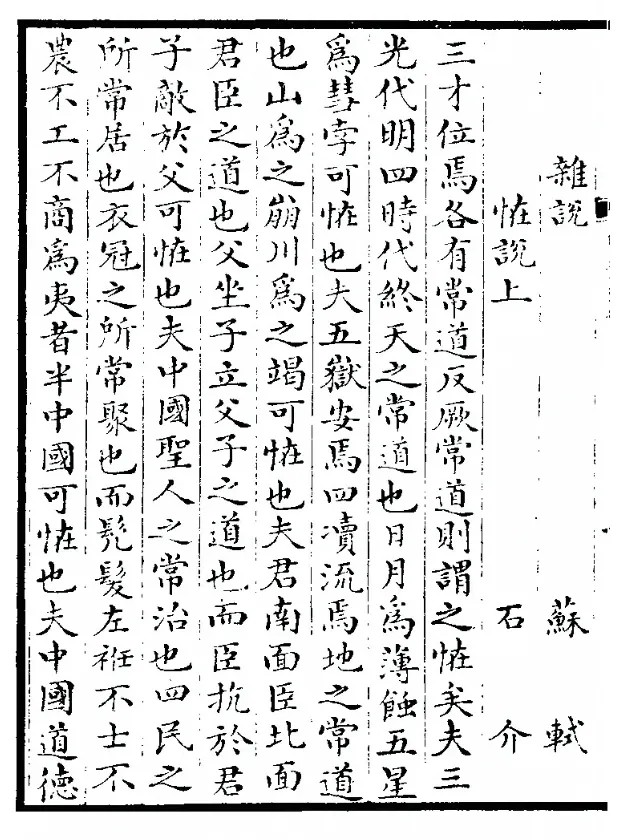 雜說 蘇軾
恠說上 石介
三才位焉各有常道反厥常道則謂之恠矣夫三
光代明四時代終天之常道也日月爲薄蝕五星
爲彗孛可恠也夫五嶽安焉四瀆流焉地之常道
也山爲之崩川爲之竭可恠也夫君南面臣北面
君臣之道也父坐子立父子之道也而臣抗於君
子敵於父可恠也夫中國聖人之常治也四民之
所常居也衣冠之所常聚也而髡髮左衽不士不
農不工不商爲夷者半中國可恠也夫中國道德